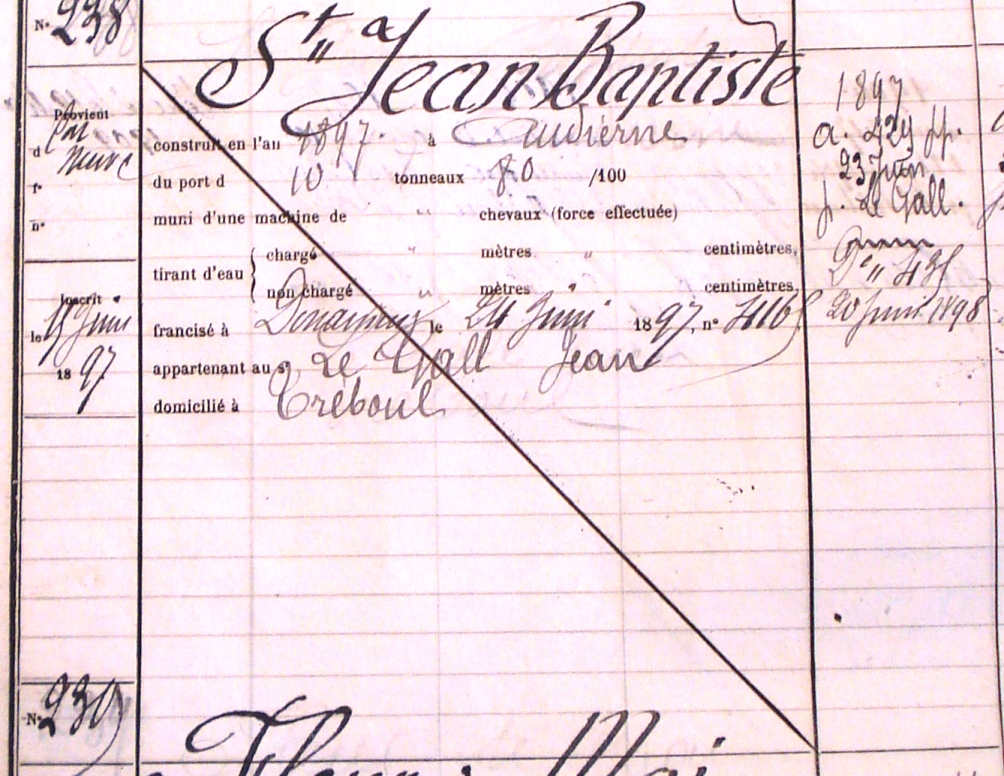 N° 238
St Jean Baptiste
Provient
Bat
neuf
d
f°
n°
construit en l'an 1897 à Audierne
du port d 10 tonneaux 80 /100
muni d'une machine de " chevaux (force effectuée)
tirant d'eau { chargé " mètres " centimètres,
non chargé " mètres centimètres,
Inscrit
le 15 Juin
1897
francisé à Douarnenez le 24 Juin 1897, n° 4116
appartenant au sr Le Gall Jean
domicilié à Tréboul
1897
a. 229 pp.
23 Juin
p. Le Gall.
Dz
D° " 435
20 Juin 1898
N° 239
Fleur de Mai